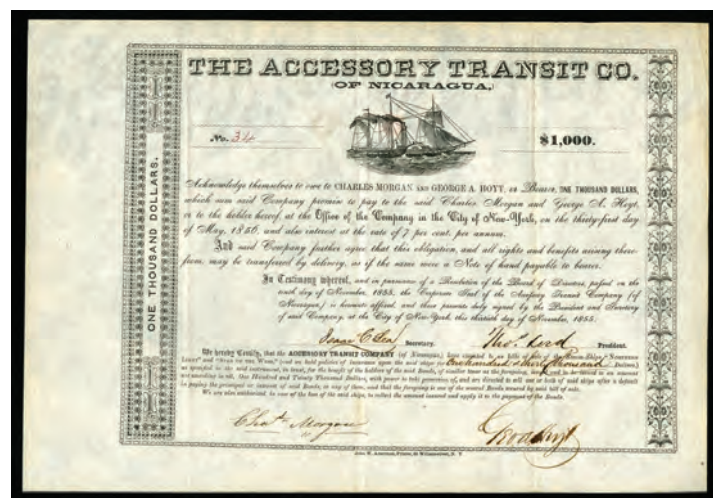 THE ACCESSORY TRANSIT CO.
(OF NICARAGUA,)
No. 34
$1,000.
Acknowledge themselves to owe to CHARLES MORGAN AND GEORGE A. HOYT, or Bearer, ONE THOUSAND DOLLARS,
which sum said Company promise to pay to the said Charles Morgan and George A. Hoyt,
or to the holder hereof, at the Office of the Company in the City of New-York, on the thirty-first day
of May, 1856, and also interest at the rate of 7 per cent. per annum.
And said Company further agree that this obligation, and all rights and benefits arising there-
from, may be transferred by delivery, as if the same were a Note of hand payable to bearer.
In Testimony whereof, and in pursuance of a Resolution of the Board of Directors, passed on the
ninth day of November, 1855, the Corporate Seal of the Accessory Transit Company (of
Nicaragua,) is hereunto affixed, and these presents duly signed by the President and Secretary
of said Company, at the City of New-York, this thirtieth day of November, 1855.
Isaac C Lea Secretary.
Thos. Lord President.
We hereby Certify, that the ACCESSORY TRANSIT COMPANY (of NICARAGUA,) have executed to us bills of sale of the Steam-Ships "NORTHERN
LIGHT" and "STAR OF THE WEST," (and we hold policies of insurance upon the said ships to One hundred & thirty thousand Dollars,)
as specified in the said instrument, in trust, for the benefit of the holders of the said Bonds, of similar tenor as the foregoing, issued and to be issued to an amount
not exceeding in all, One Hundred and Twenty Thousand Dollars, with power to take possession of, and are directed to sell one or both of said ships after a default
in paying the principal or interest of said Bonds, or any of them, and that the foregoing is one of the several Bonds secured by said bill of sale.
We are also authorized, in case of the loss of the said ships, to collect the amount insured and apply it to the payment of the Bonds.
Chas. Morgan
Geo A Hoyt
ONE THOUSAND DOLLARS.